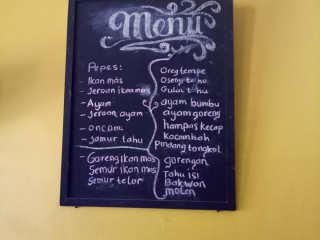 Menu
Pepes:
- Ikan mas
- Jeroan ikan mas
- Ayam
- Jeroan ayam
- oncom
- Jamur tahu
- Gareng ikan mas
Semur ikan mas
Semur telor
Oreg tempe
Oseng tahu
Gulai tahu
ayam bumbu
ayam goreng
hampas kecap
kacambah
Pindang tongkol
gorengan
Tahu isi
Bakwan
molen